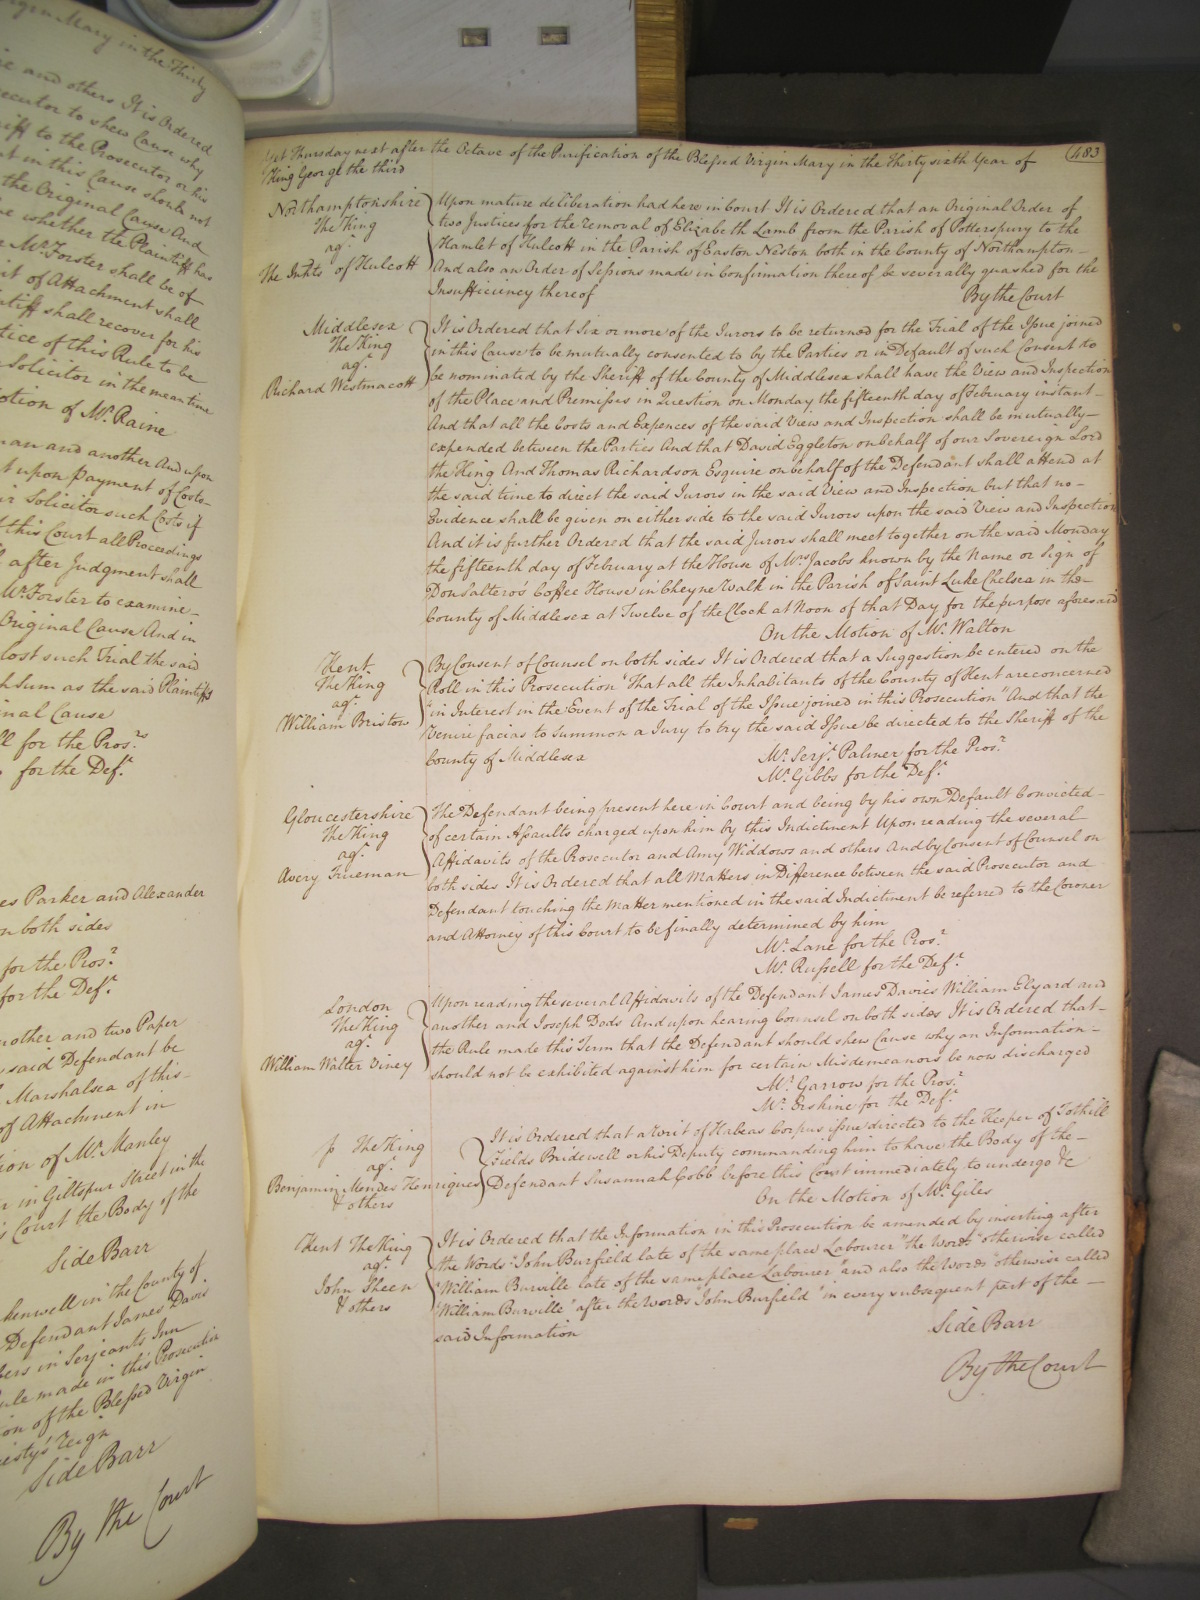 Virgin Mary in the Thirty
and others It is Ordered
Prosecutor to shew Cause why
to the Prosecutor or his
in this Cause should not
the Original Cause And
whether the Plaintiff has
Mr. Forster shall be of
of Attachment shall
shall recover for his
of this Rule to be
Solicitor in the mean time
Motion of Mr. Raine
and another And upon
upon Payment of Costs
Solicitor such Costs if
this Court all Proceedings
after Judgment shall
Mr. Forster to examine
Original Cause And in
lost such Trial the said
Sum as the said Plaintiffs
Cause
for the Pros.r
for the Def.t
Parker and Alexander
on both sides
for the Pros.r
for the Def.t
another and two Paper
said Defendant be
Marshalsea of this
of Attachment in
of Mr. Manley
in Giltspur Street in the
Court the Body of the
Side Barr
in the County of
Defendant James Davis
in Serjeants Inn
made in this Prosecution
of the Blessed Virgin
Reign
Side Barr
By the Court
483
Yet Thursday next after the Octave of the Purification of the Blessed Virgin Mary in the Thirty sixth Year of
King George the third
Northamptonshire
The King
ag.t
The Inhits of Hulcott
Upon mature deliberation had here in Court It is Ordered that an Original Order of
two Justices for the removal of Elizabeth Lamb from the Parish of Potterspury to the
Hamlet of Hulcott in the Parish of Easton Neston both in the County of Northampton
And also an Order of Sessions made in Confirmation thereof be severally quashed for the
Insufficiency thereof
By the Court
Middlesex
The King
ag.t
Richard Westmacott
It is Ordered that Six or more of the Jurors to be returned for the Trial of the Issue joined
in this Cause to be mutually consented to by the Parties or in Default of such Consent to
be nominated by the Sheriff of the County of Middlesex shall have the View and Inspection
of the Place and Premisses in Question on Monday the fifteenth day of February instant
And that all the Costs and Expences of the said View and Inspection shall be mutually
expended between the Parties And that David Eggleton on behalf of our Sovereign Lord
the King And Thomas Richardson Esquire on behalf of the Defendant shall attend at
the said time to direct the said Jurors in the said View and Inspection but that no
Evidence shall be given on either side to the said Jurors upon the said View and Inspection
And it is further Ordered that the said Jurors shall meet together on the said Monday
the fifteenth day of February at the House of Mrs. Jacobs known by the Name or Sign of
Don Saltero's Coffee House in Cheyne Walk in the Parish of Saint Luke Chelsea in the
County of Middlesex at Twelve of the Clock at Noon of that Day for the purpose aforesaid
On the Motion of Mr. Walton
Kent
The King
ag.t
William Bristow
By Consent of Counsel on both sides It is Ordered that a Suggestion be entered on the
Roll in this Prosecution "That all the Inhabitants of the County of Kent are concerned
"in Interest in the Event of the Trial of the Issue joined in this Prosecution" And that the
Venire facias to summon a Jury to try the said Issue be directed to the Sheriff of the
County of Middlesex
Mr. Serj.t Palmer for the Pros.r
Mr. Gibbs for the Def.t
Gloucestershire
The King
ag.t
Avery Trueman
The Defendant being present here in Court and being by his own Default Convicted
of certain Assaults charged upon him by this Indictment Upon reading the several
Affidavits of the Prosecutor and Amy Widdows and others And by Consent of Counsel on
both sides It is Ordered that all Matters in Difference between the said Prosecutor and
Defendant touching the Matter mentioned in the said Indictment be referred to the Coroner
and Attorney of this Court to be finally determined by him
Mr. Lane for the Pros.r
Mr. Russell for the Def.t
London
The King
ag.t
William Walter Viney
Upon reading the several Affidavits of the Defendant James Davies William Elyard and
another and Joseph Dods And upon hearing Counsel on both sides It is Ordered that
the Rule made this Term that the Defendant should shew Cause why an Information
should not be exhibited against him for certain Misdemeanors be now discharged
Mr. Garrow for the Pros.r
Mr. Erskine for the Def.t
The King
ag.t
Benjamin Mendes Henriques
& others
It is Ordered that a Writ of Habeas Corpus issue directed to the Keeper of Tothill
Fields Bridewell or his Deputy commanding him to have the Body of the
Defendant Susannah Cobb before this Court immediately to undergo &c
On the Motion of Mr. Giles
Kent The King
ag.t
John Skeen
& others
It is Ordered that the Information in this Prosecution be amended by inserting after
the Words "John Burfield late of the same place Labourer" the Words "otherwise called
"William Burville late of the same place Labourer" and also the Words "otherwise called
"William Burville" after the Words "John Burfield" in every subsequent part of the
said Information
Side Barr
By the Court